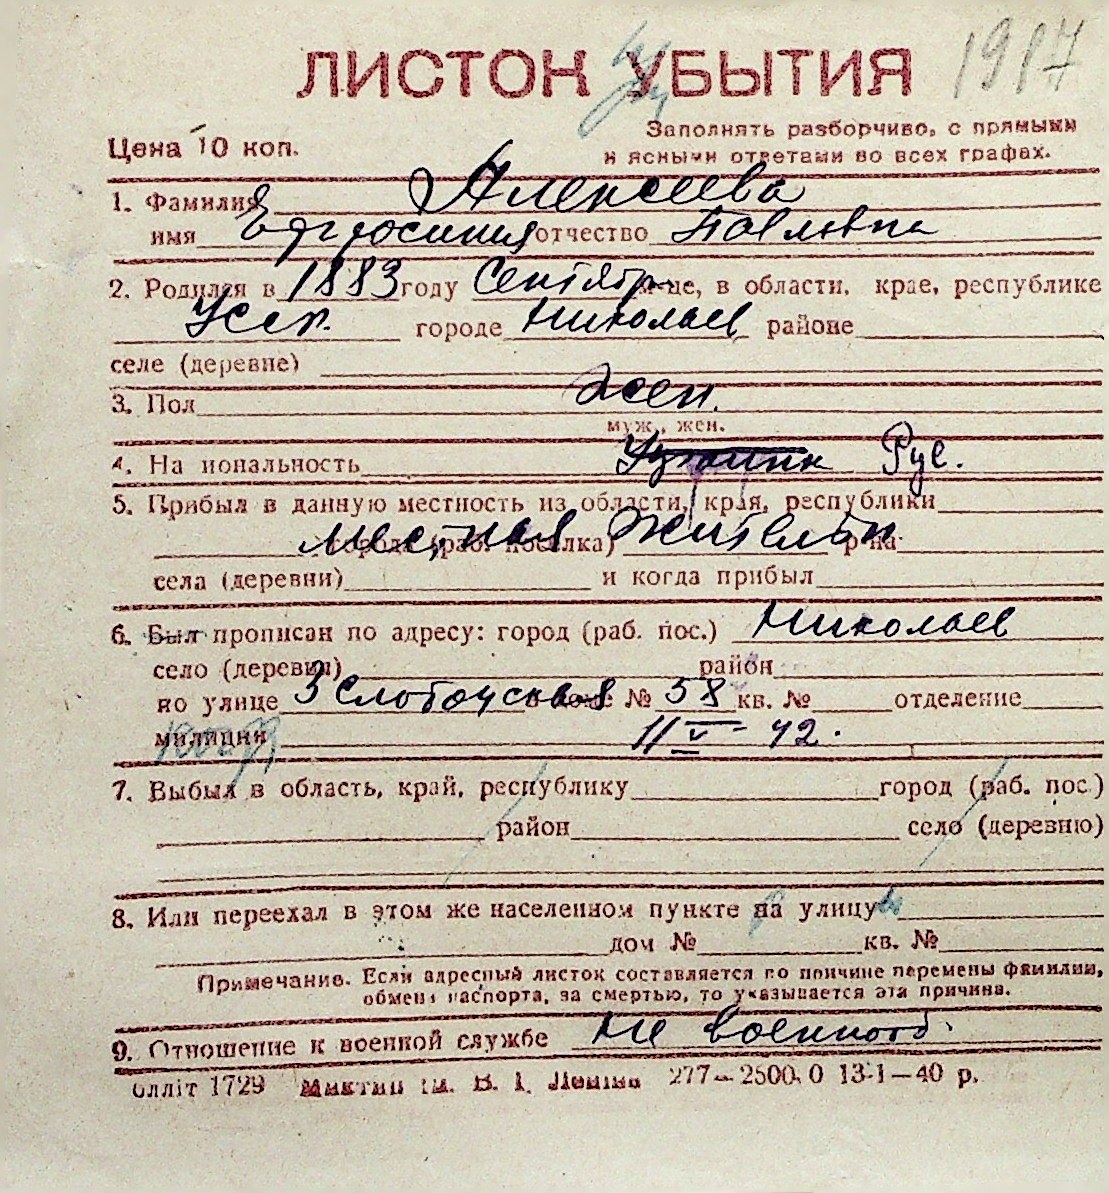 ЛИСТОК УБЫТИЯ 1917
Цена 10 коп.
Заполнять разборчиво, с прямыми
и ясными ответами во всех графах.
1. Фамилия Алексеева
имя Ефросиния отчество Павловна
2. Родился в 1883 году Сентябр м-це, в области, крае, республике
Усср. городе Николаев районе
селе (деревне)
3. Пол Жен.
муж., жен.
4. На иональность Рус.
5. Прибыл в данную местность из области, края, республики
местная жительн.
города (раб. поселка) р-на
села (деревни) и когда прибыл
6. Был прописан по адресу: город (раб. пос.) Николаев
село (деревня) район
по улице 3 Слободская доме № 58 кв. № отделение
милиции 11 V - 42.
7. Выбыл в область, край, республику город (раб. пос.)
район село (деревню)
8. Или переехал в этом же населенном пункте на улицу
дом № кв. №
Примечание. Если адресный листок составляется по причине перемены фамилии,
обмена паспорта, за смертью, то указывается эта причина.
9. Отношение к военной службе Не военнооб.
олліт 1729 277—2500.0 13-1—40 р.